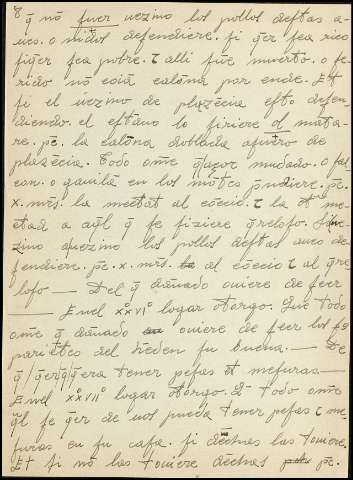 & q̃ nõ fuer uezino los pollos deſtas a-
ues. o nidos defendiere. ſi q̃er ſea rico
ſiq̃er ſea pobre. τ alli fue muerto. o fe-
rido nõ coia calõna por ende. Et
ſi el uezino de plazẽcia eſto defen-
diendo. el eſtano lo firiere ol mata-
re. pẽ. la calõna doblada afuero de
plazẽcia. Todo om̃e mudado. o fal
con. o gauilã en los mõtes p̃ndiere. pẽ.
x. mr̃s. la meetat al cõceio. τ la otra me-
etad a aq̃l q̃ fe fiziere q̃reloſo. Si ue-
zino auezino los pollos deſtas aues de
fendiere. pẽ. x. mr̃s. al cõceio τ al q̃re
loſo — Del q̃ dañado ouiere de ſeer
— Enel xxviº logar otorgo. Que todo
om̃e q̃ dañado ouiere de ſeer los
pariẽtes del hereden ſu buena. — De
q̃ q̃ſiera tener peſas et meſuras —
Enel xxviiº logar otorgo. Q̃ todo om̃e
q̃l ſe q̃er de uos pueda tener peſas τ me-
ſuras en ſu caſa. ſi derechas las touiere.
Et ſi nõ las touiere derechas pẽ.